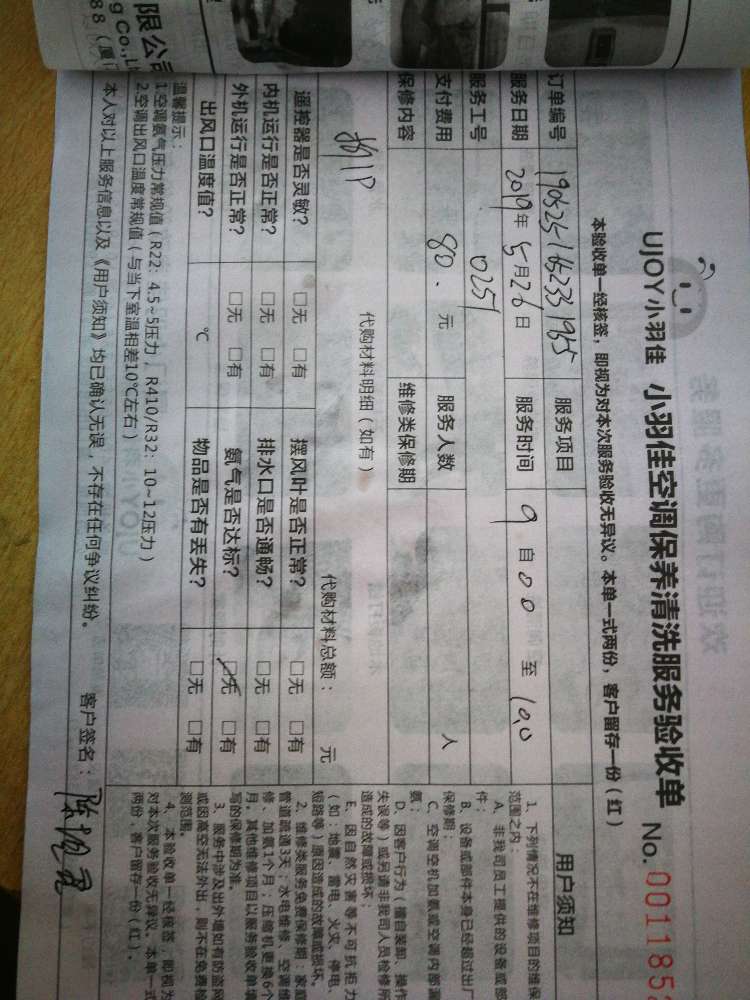 限公司
g Co.,Lt
88（厦门
UJOY小羽佳 小羽佳空调保养清洗服务验收单 No. 001185
本验收单一经核签，即视为对本次服务验收无异议。本单一式两份，客户留存一份（红）
订单编号 服务项目
服务日期 2019年5月26日 服务时间 9 自 00 至 10.0
服务工号 0251
支付费用 80. 元 服务人数 人
保修内容 维修类保修期
代购材料明细（如有）
代购材料总额： 元
遥控器是否灵敏？ □无 □有 摆风叶是否正常？ □无 □有
内机运行是否正常？ □无 □有 排水口是否通畅？ □无 □有
外机运行是否正常？ □无 □有 氨气是否达标？ □无 □有
出风口温度值？ ℃ 物品是否有丢失？ □无 □有
温馨提示：
1.空调氨气压力常规值（R22：4.5~5压力，R410/R32：10~12压力）
2.空调出风口温度常规值（与当下室温相差10℃左右）
本人对以上服务信息以及《用户须知》均已确认无误，不存在任何争议纠纷。 客户签名：
用户须知
1、下列情况不在维修项目的维保
范围之内：
A、非我司员工提供的设备或部
件；
B、设备或部件本身已经超过出厂
保修期；
C、空调空机加氨或空调内部漏
氨；
D、因客户行为（擅自装卸、操作
失误等）或另请非我司人员检修所
造成的故障或损坏；
E、因自然灾害等不可抗拒力
（如：地震、雷电、火灾、停电、
短路等）原因造成的故障或损坏。
2、维修类服务免费保修期：家庭
管道疏通3天；水电维修、空调维
修、加氨1个月；压缩机更换6个
月。其他维修项目以服务验收单填
写的保修期为准。
3、服务中涉及出外墙如有防盗网
或因高空无法外出，则不在免费检
测范围。
4、本验收单一经核签，即视为
对本次服务验收无异议。本单一式
两份，客户留存一份（红）。